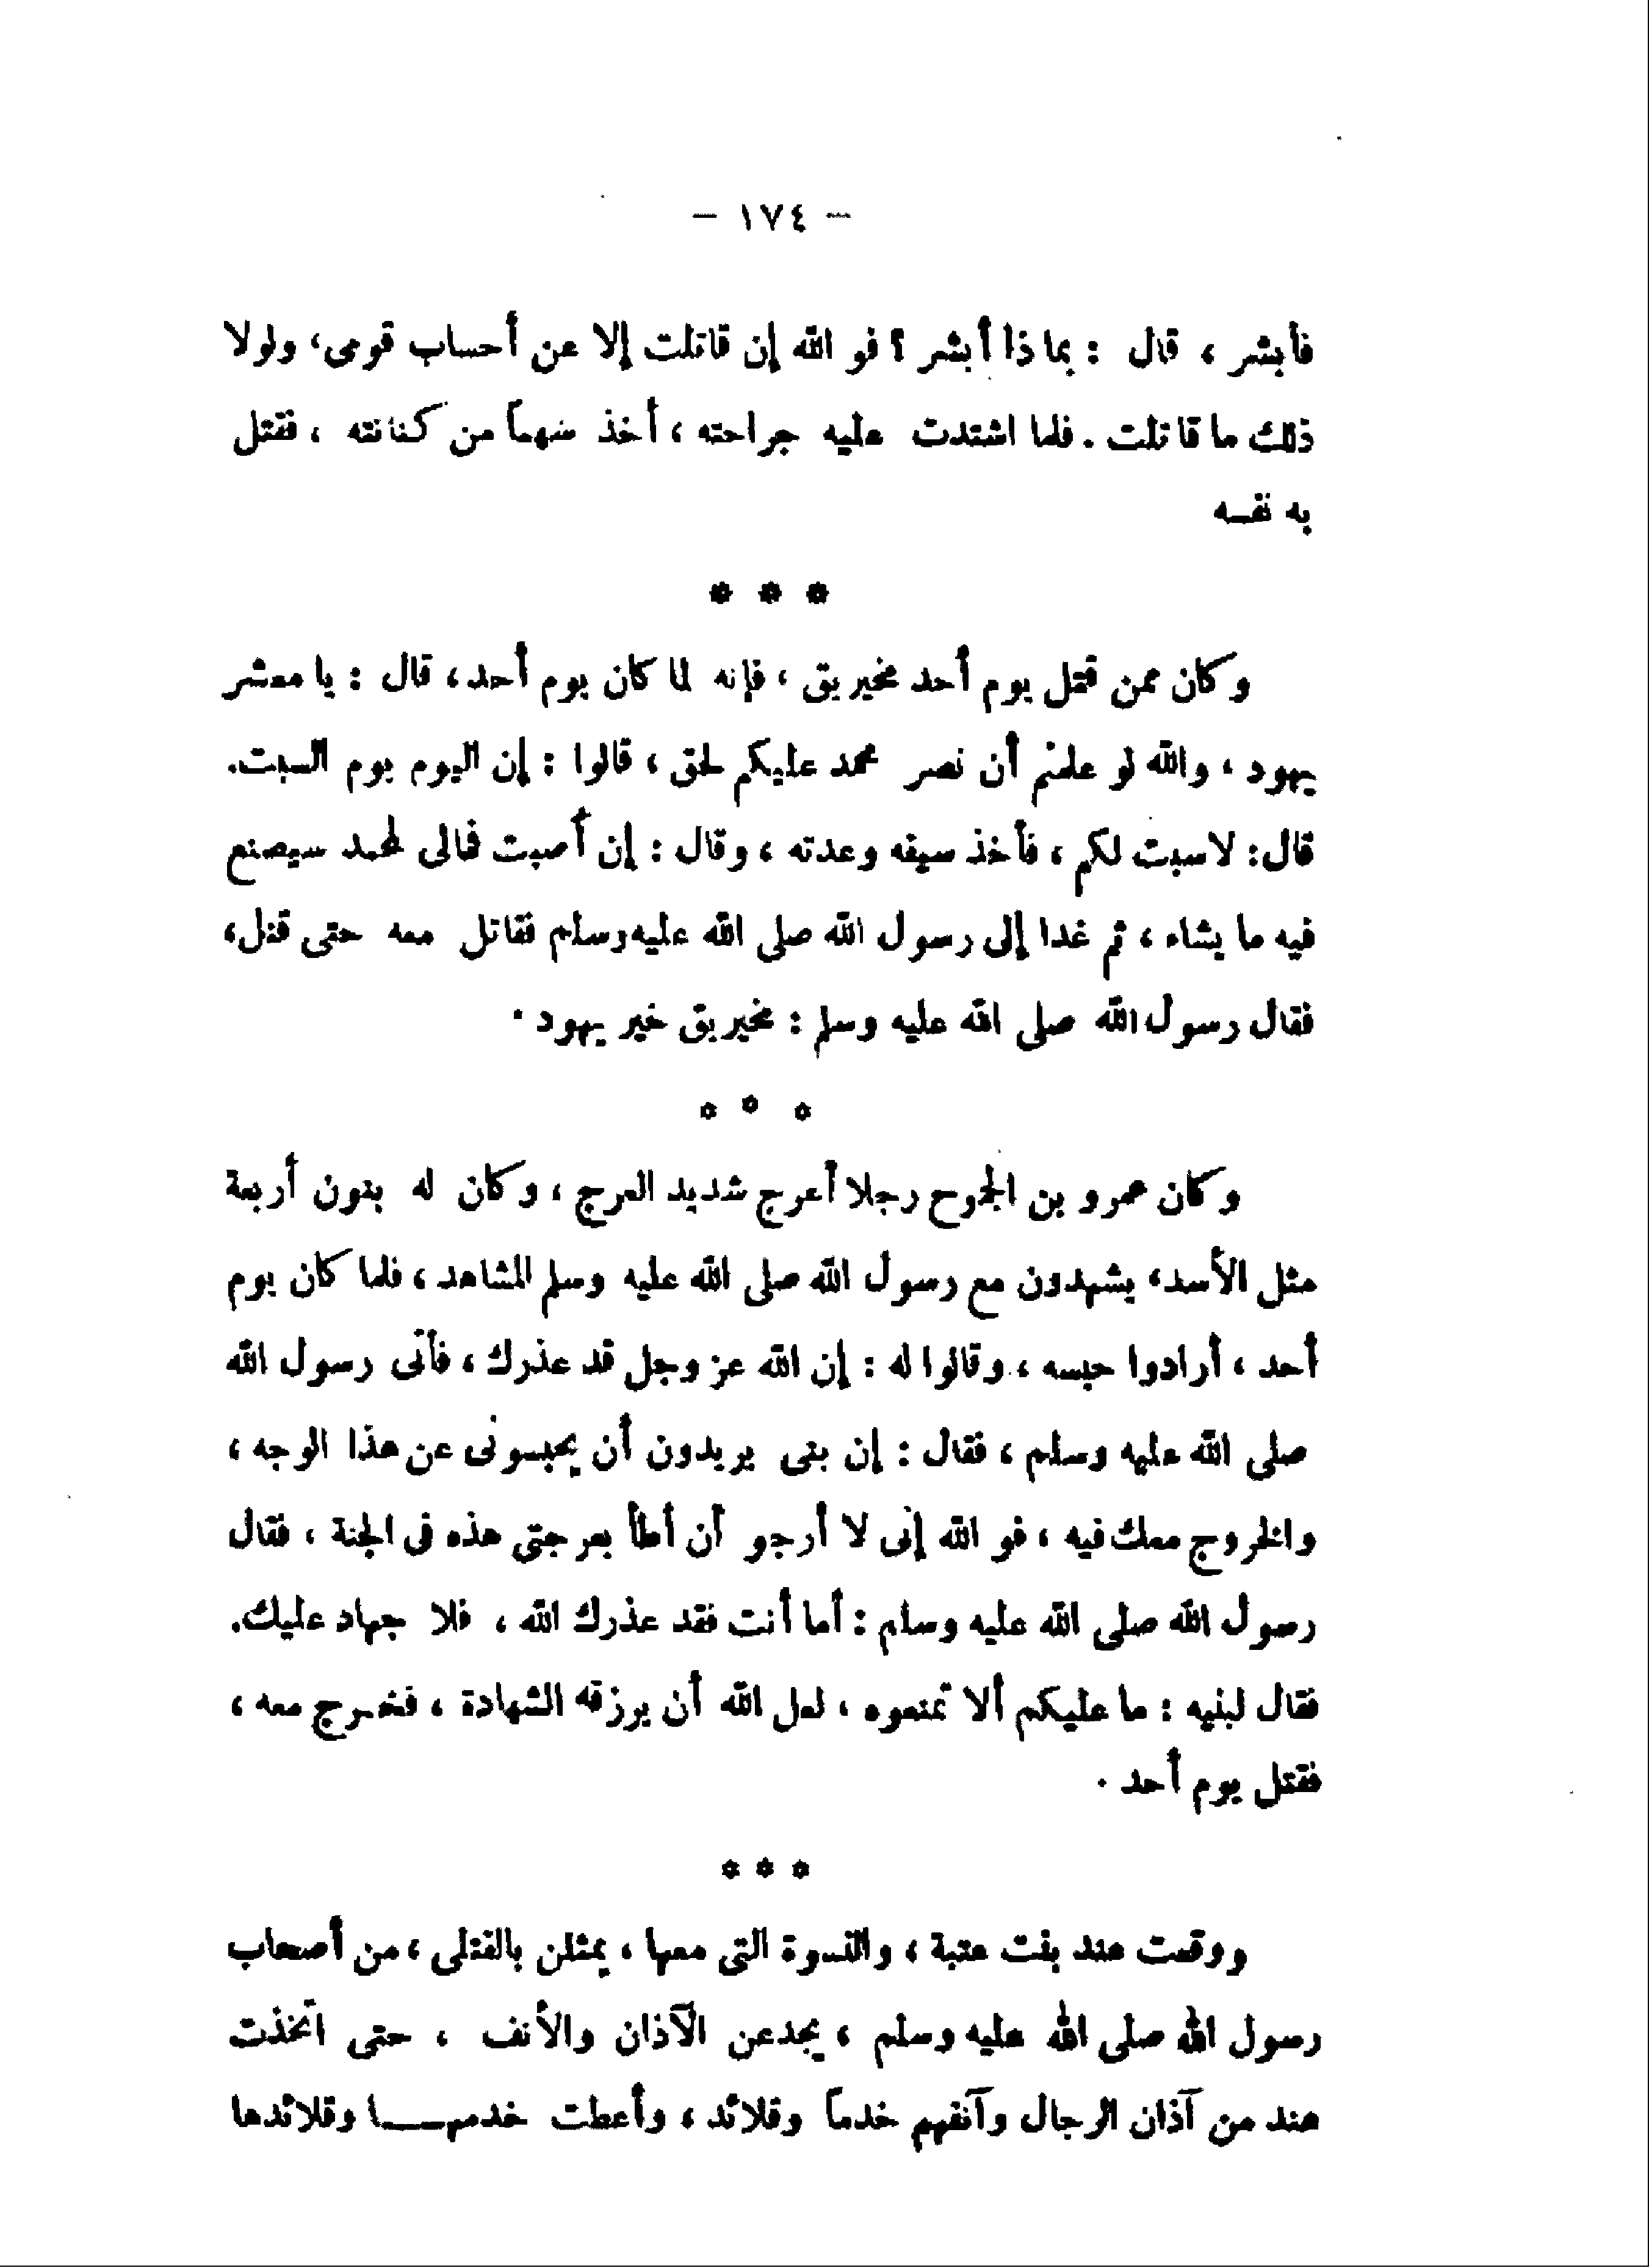 — ١٧٤ —
فأبشر ، قال : بماذا أبشر ؟ فو الله إن قاتلت إلا عن أحساب قومى، ولولا
ذلك ما قاتلت . فلما اشتدت عليه جراحته ، أخذ سهماً من كنانته ، فقتل
به نفسه
* * *
وكان ممن قتل يوم أحد مخيريق ، فإنه لما كان يوم أحد ، قال : يا معشر
يهود ، والله لو علمتم أن نصر محمد عليكم لحق ، قالوا : إن اليوم يوم السبت.
قال: لاسبت لكم ، فأخذ سيفه وعدته ، وقال : إن أصبت فمالى لمحمد سيصنع
فيه ما يشاء ، ثم غدا إلى رسول الله صلى الله عليه وسلم فقاتل معه حتى قتل،
فقال رسول الله صلى الله عليه وسلم : مخيريق خير يهود .
* * *
وكان عمرو بن الجموح رجلا أعرج شديد العرج ، وكان له بنون أربعة
مثل الأسد، يشهدون مع رسول الله صلى الله عليه وسلم المشاهد ، فلما كان يوم
أحد ، أرادوا حبسه ، وقالوا له : إن الله عز وجل قد عذرك ، فأتى رسول الله
صلى الله عليه وسلم ، فقال : إن بنى يريدون أن يحبسونى عن هذا الوجه ،
والخروج معك فيه ، فو الله إنى لا أرجو أن أطأ بعرجتى هذه فى الجنة ، فقال
رسول الله صلى الله عليه وسلم : أما أنت فقد عذرك الله ، فلا جهاد عليك.
فقال لبنيه : ما عليكم ألا تمنعوه ، لعل الله أن يرزقه الشهادة ، فخرج معه ،
فقتل يوم أحد .
* * *
ووقعت هند بنت عتبة ، والنسوة التى معها ، يمثلن بالقتلى ، من أصحاب
رسول الله صلى الله عليه وسلم ، يجدعن الآذان والأنف ، حتى اتخذت
هند من آذان الرجال وآنفهم خدماً وقلائد ، وأعطت خدمهـــا وقلائدها